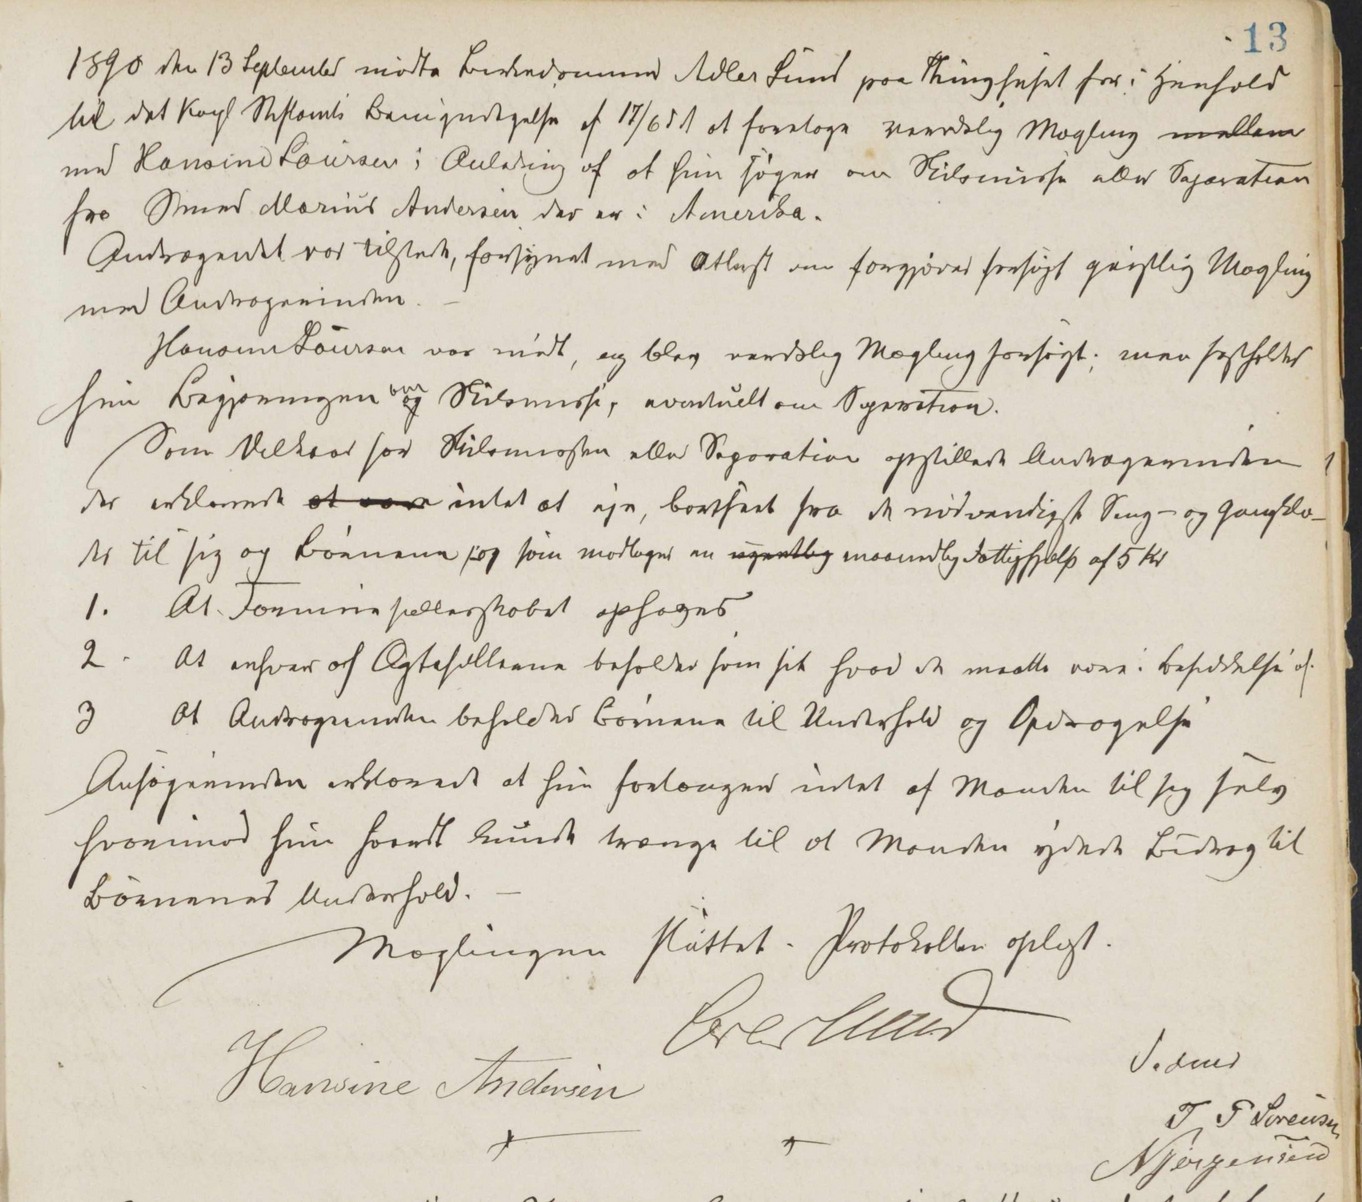 13
1890 den 13 September mødte Birkedommer Adler Lund paa Thinghuset for i Henhold
til det Kongl Stiftamts Bemyndigelse af 17/6 d A at foretage verdslig Mægling mellem
med Hansine Laursen i Anledning af at hun søger om Skilsmisse eller Separation
fra Smed Marius Andersen der er i Amerika.
Andragendet var tilstede, forsynet med Attest om forgjæves forsøgt geistlig Mægling
med Andragerinden. —
Hansine Laursen var mødt, og blev verdslig Mægling forsøgt; men fastholder
hun Begjæringen om og Skilsmisse, eventuelt om Separation.
Som Vilkaar for Skilsmissen eller Separation opstillede Andragerinden
der erklærede at være intet at eje, bortseet fra de nødvendigste Seng- og Gangklæ-
der til sig og Børnene, og som modtager en ugentlig maanedlig Fattighjælp af 5 Kr
1. At Formuefællesskabet ophæves
2. At enhver af Ægtefællerne beholder som sit hvad de maatte være i Besiddelse af.
3 At Andragerinden beholder Børnene til Underhold og Opdragelse
Ansøgerinden erklærede at hun forlanger intet af Manden til sig selv
hvorimod hun haardt kunde trænge til at Manden ydede Bidrag til
Børnenes Underhold. —
Mæglingen sluttet. Protokollen oplæst.
Adler Lund
Hansine Andersen
Vidner
T P Sørensen
N Jørgensen